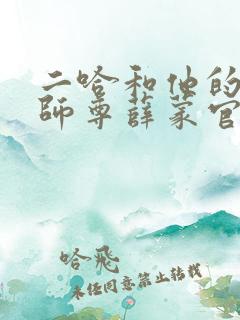 二哈和他的
师尊薛蒙官
哈飛
未经同意禁止转载